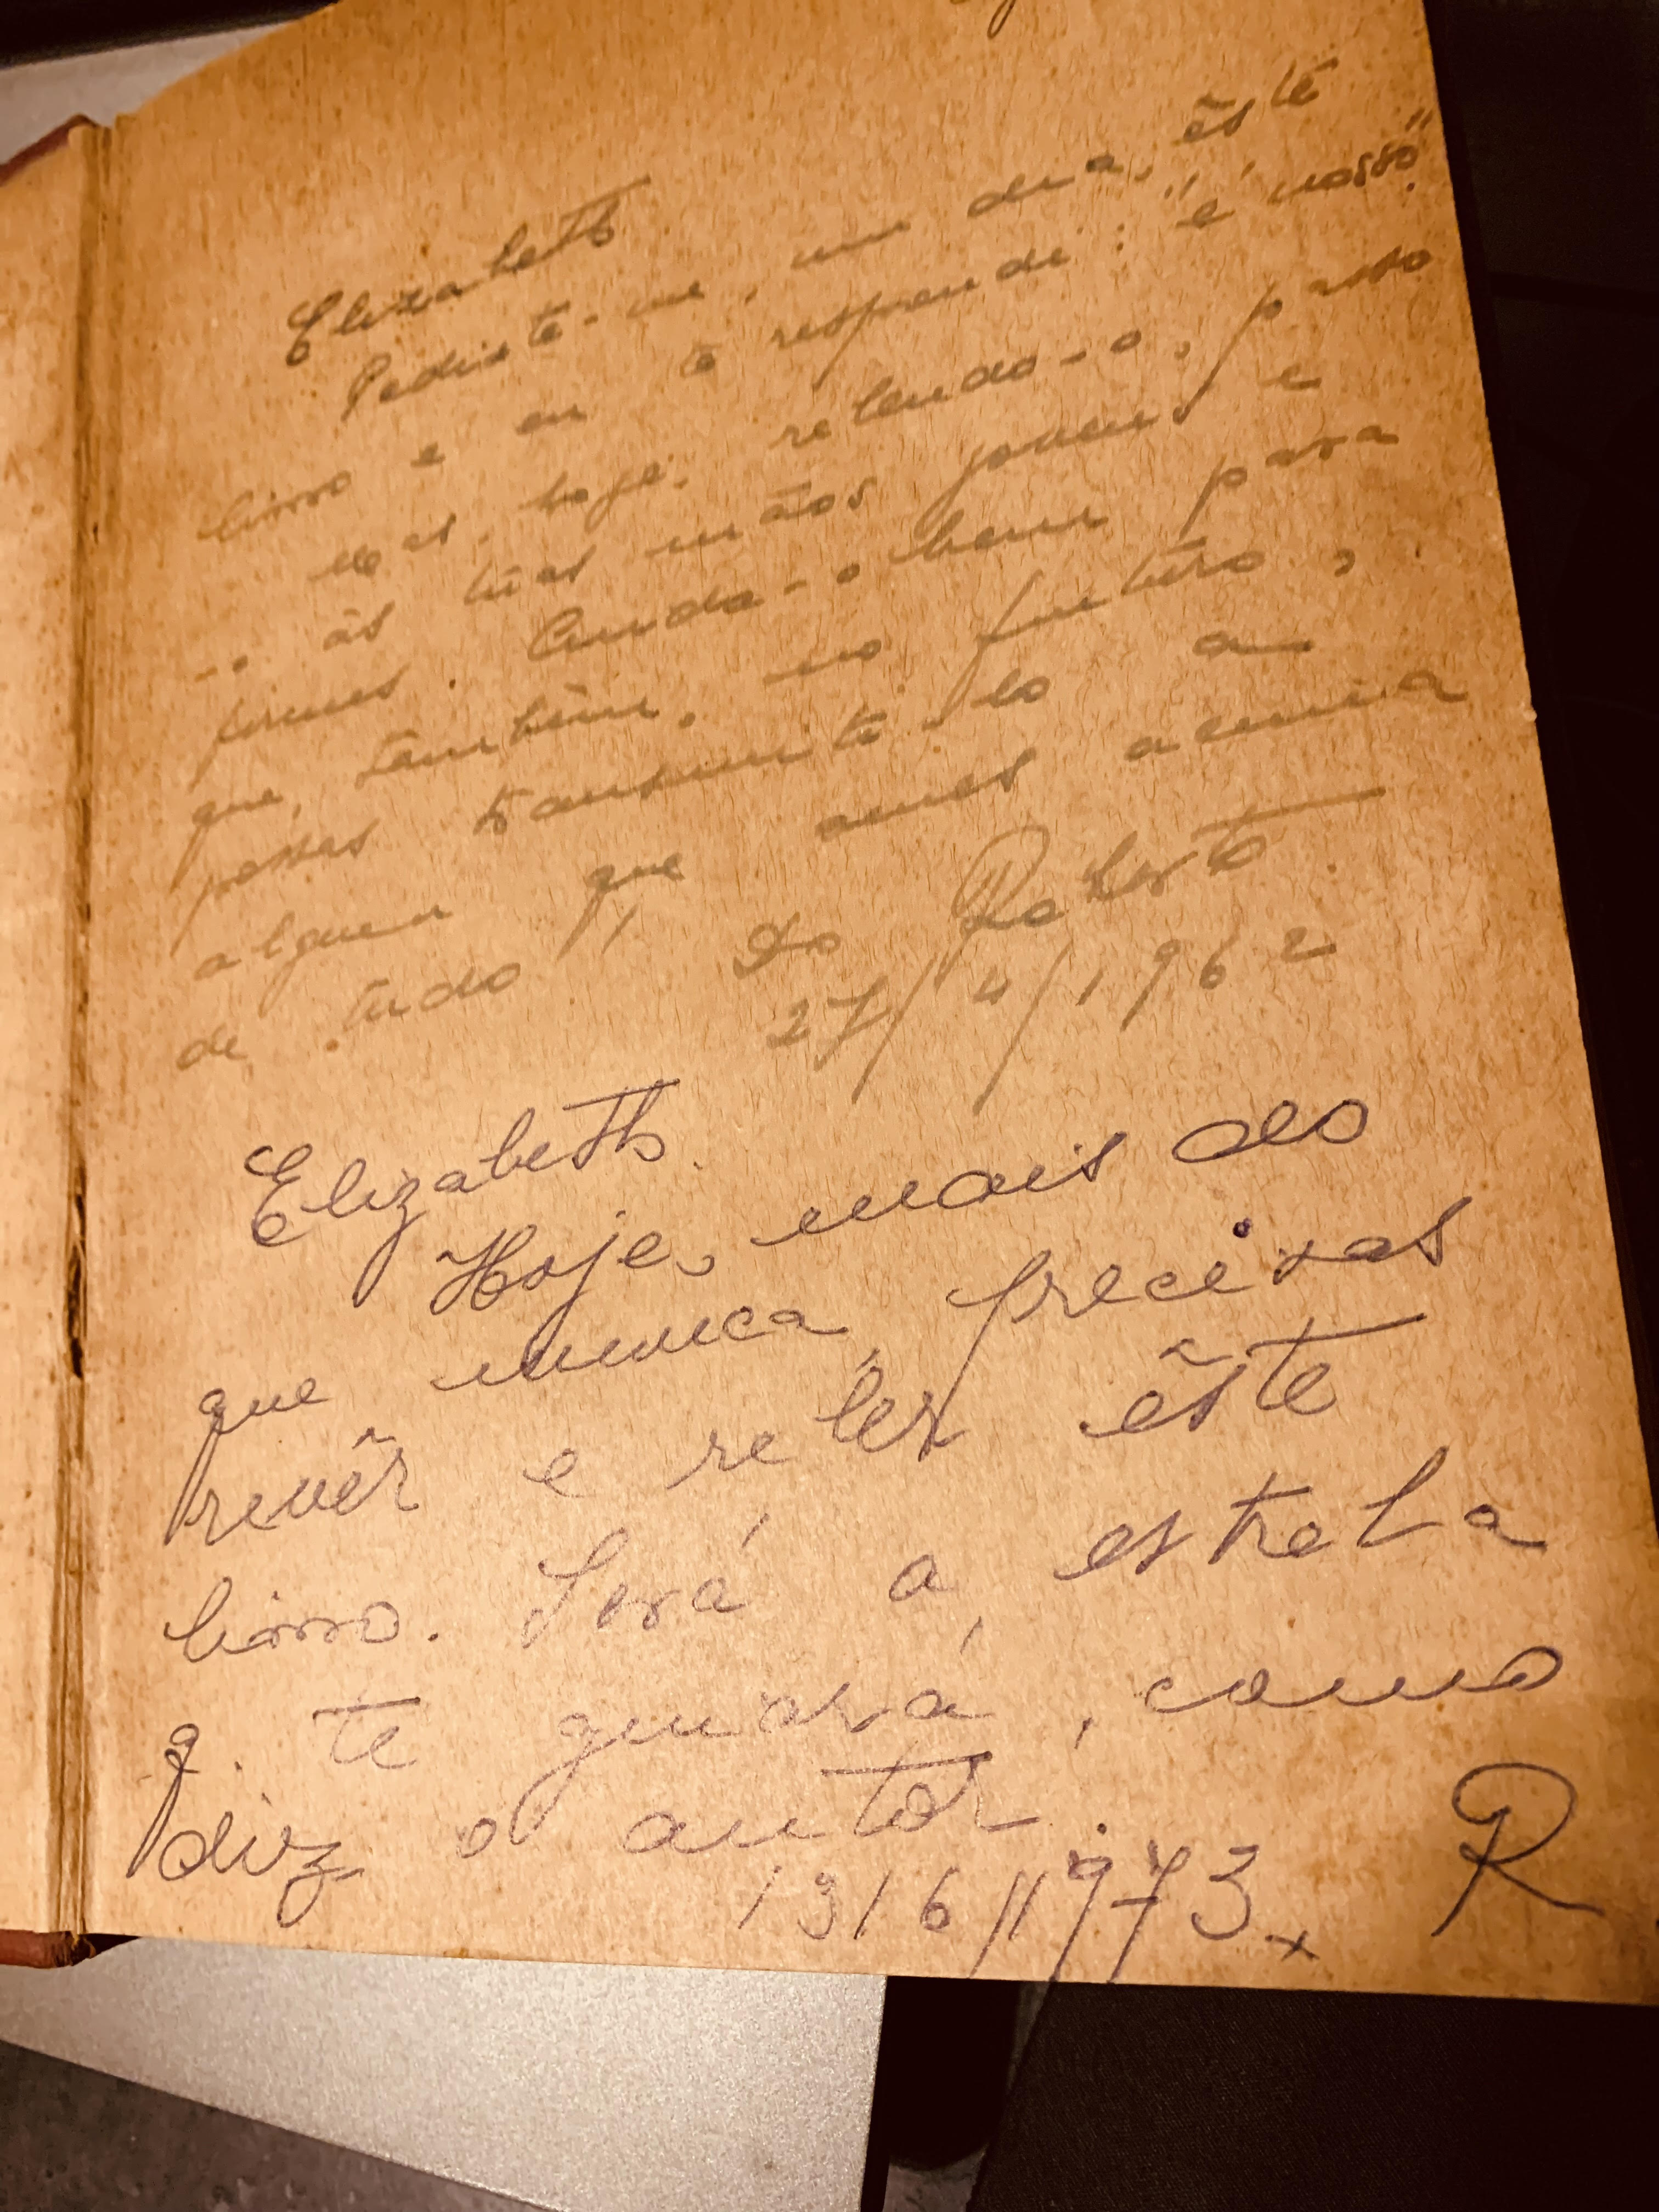 Elizabeth
Pediste-me, um dia, êste
livro e eu te respondi: "é nosso".
mas, hoje, relendo-o, passo
-o às tuas mãos jovens e
firmes. Cuida-o bem para
que, também, no futuro,
possas transmiti-lo a
alguem que ames acima
de tudo!
Do Roberto
27/4/1962
Elizabeth.
Hoje, mais do
que nunca, precisas
revêr e reler êste
livro. Será a estrela
q. te guiará, como
diz o autor.
13/6/1973 R